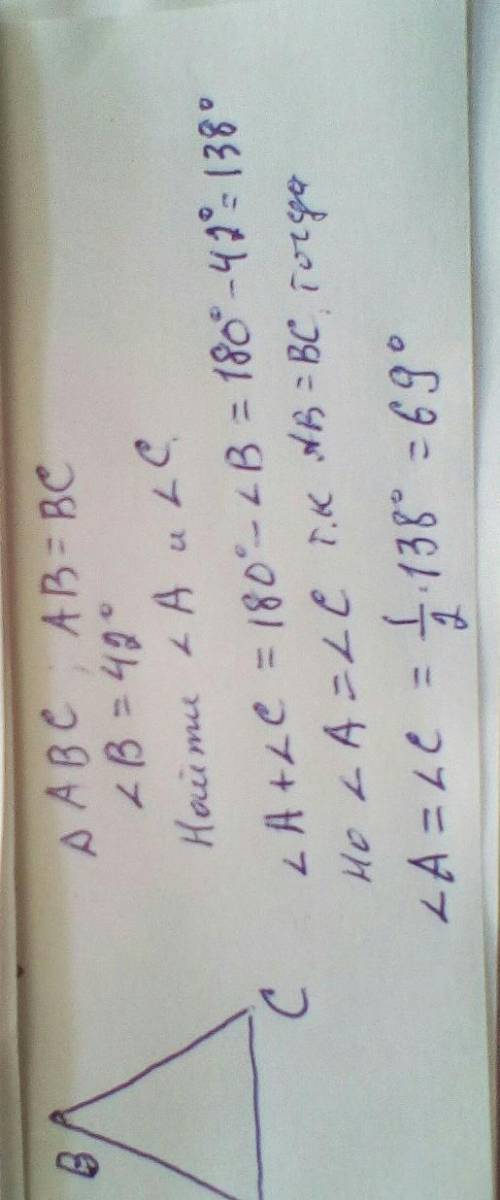 Δ ABC; AB = BC
∠B = 42°
Найти ∠A и ∠C.
∠A + ∠C = 180° - ∠B = 180° - 42° = 138°
Но ∠A = ∠C т.к AB = BC, тогда
∠A = ∠C = 1/2 · 138° = 69°
B
C